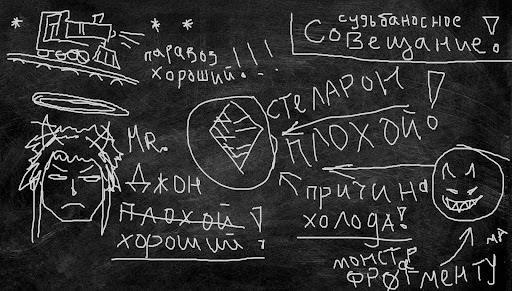 судьбаносное
Совещание!
паравоз
хороший!!!
СТЕЛАРОН
ПЛОХОЙ!
MR.
ДЖОН
ПЛОХОЙ
хороший!
ПРИЧИНа
ХОЛОДА!
МОНСТР
ФРаГМЕНТУ